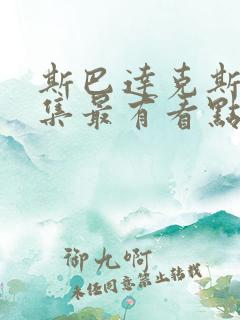 斯巴達克斯
集最有看點
御九啊
未經同意禁止轉載